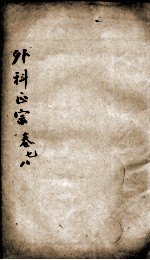 外科正宗卷七八